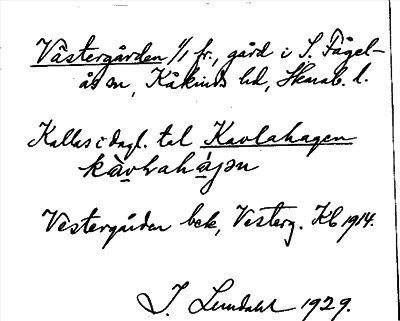 Västergården 1/1 fr., gård i S. Fågel-
ås sn, Kåkinds hd, Skarab. l.
Kallas i dagl. tal Kavlahagen
Västergården bek, Vesterg. Kb 1914.
I. Lundahl 1929.